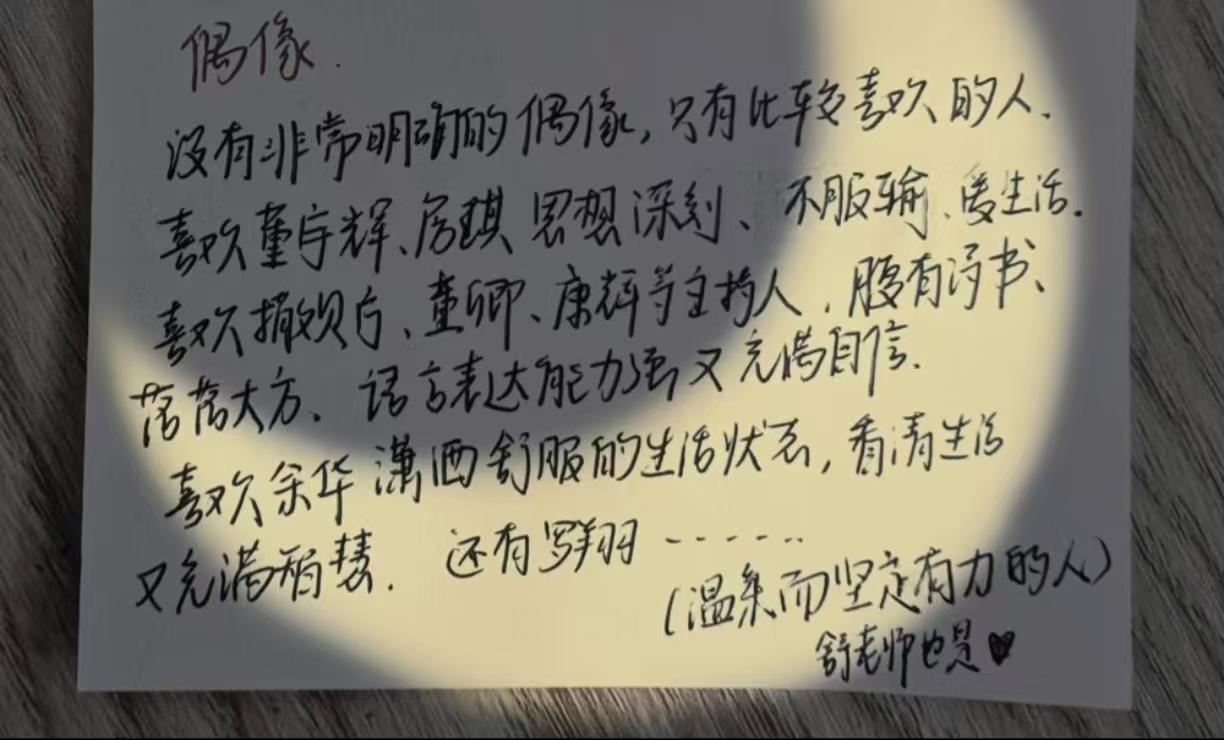 偶像.
没有非常明确的偶像,只有比较喜欢的人.
喜欢董宇辉、房琪 思想深刻、不服输、爱生活.
喜欢撒贝宁、董卿、康辉等主持人,腹有诗书、
落落大方、语言表达能力强又充满自信.
喜欢余华 潇洒舒服的生活状态,看清生活
又充满智慧. 还有罗翔······
(温柔而坚定有力的人)
舒老师也是♥